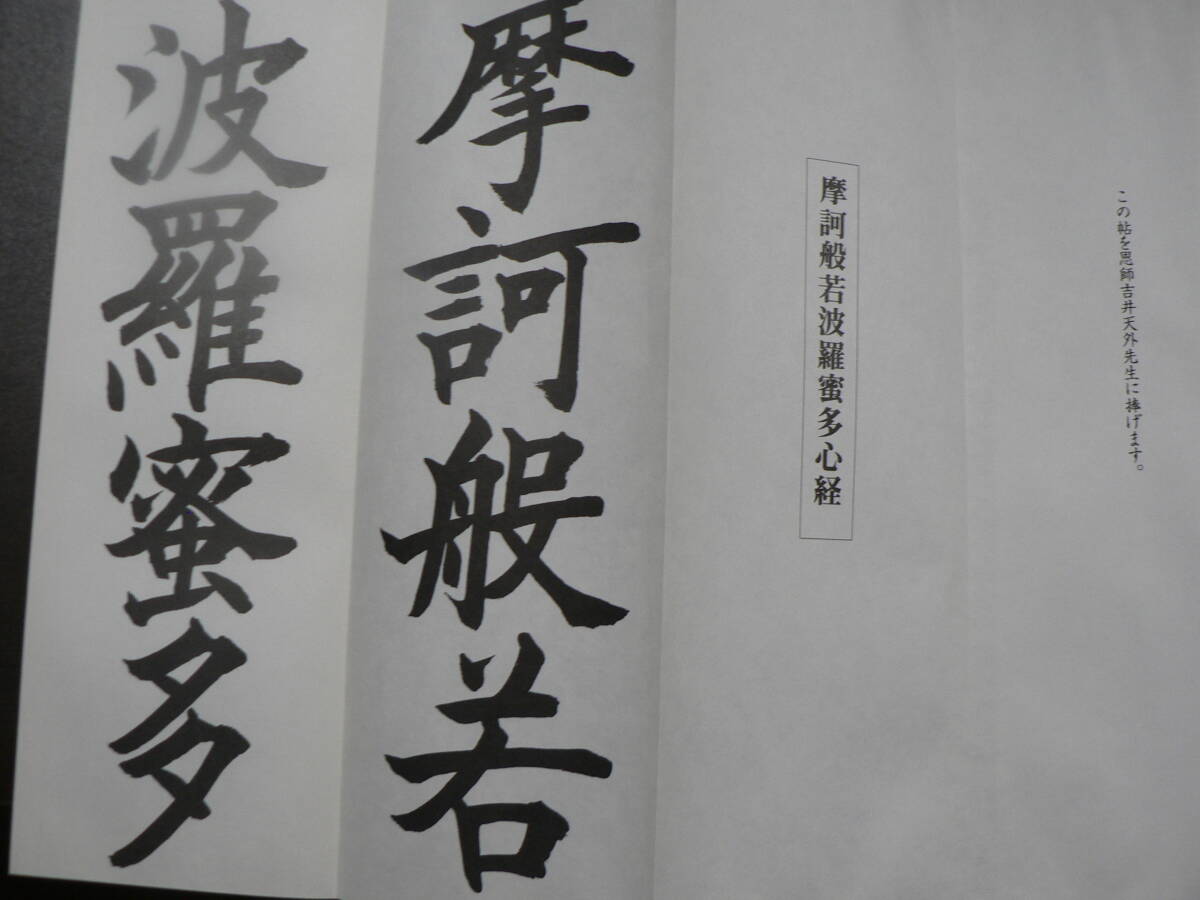 この帖を恩師吉井天外先生に捧げます。
摩訶般若波羅蜜多心経
摩訶般若
波羅蜜多